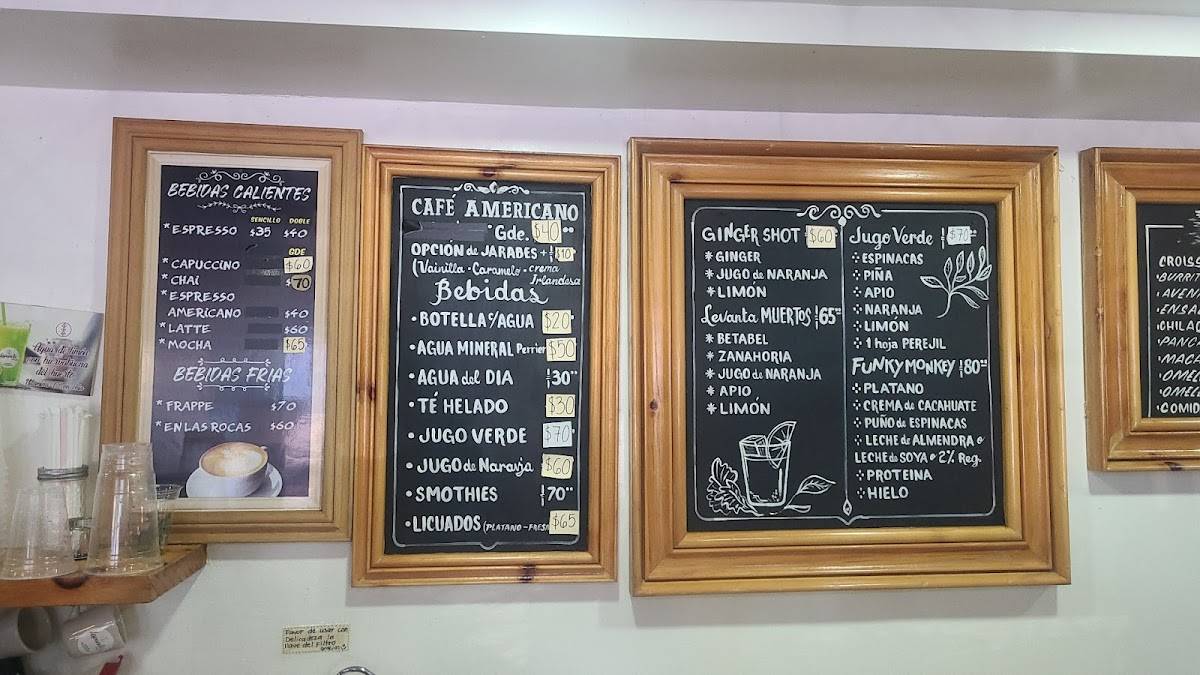 BEBIDAS CALIENTES
SENCILLO DOBLE
* ESPRESSO $35 $40
GDE
* CAPUCCINO $60
* CHAI $70
* ESPRESSO
AMERICANO $40
* LATTE $60
* MOCHA $65
BEBIDAS FRIAS
* FRAPPE $70
* EN LAS ROCAS $60
CAFÉ AMERICANO
Gde. $40
OPCIÓN de JARABES + $10
(Vainilla · Caramelo · crema
Irlandesa
Bebidas
· BOTELLA c/AGUA $20
· AGUA MINERAL Perrier $50
· AGUA del DIA $30
· TÉ HELADO $30
· JUGO VERDE $70
· JUGO de Naranja $60
· SMOTHIES $70
· LICUADOS (PLATANO - FRESA $65
GINGER SHOT $60
* GINGER
* JUGO de NARANJA
* LIMÓN
Levanta MUERTOS $65
* BETABEL
* ZANAHORIA
* JUGO de NARANJA
* APIO
* LIMÓN
Jugo Verde $70
ESPINACAS
PIÑA
APIO
NARANJA
LIMÓN
1 hoja PEREJIL
FUNKY MONKEY $80
PLATANO
CREMA de CACAHUATE
PUÑO de ESPINACAS
LECHE de ALMENDRA o
LECHE de SOYA o 2% Reg.
PROTEINA
HIELO
CROISS
BURRIT
AVENA
ENSAL
CHILA
PANCA
MACH
OMEL
OMELE
COMID
Favor de usar con
Delicadeza la
llave del Filtro